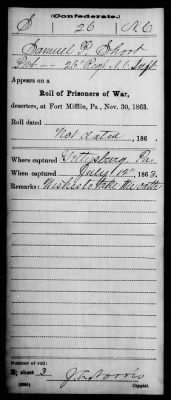 (Confederate.)
S 26 N.C.
Samuel P. Short
Pvt — 26" Regt. N.C. Inft.
Appears on a
Roll of Prisoners of War,
deserters, at Fort Mifflin, Pa., Nov. 30, 1863.
Roll dated
Not dated, 186 .
Where captured Gettysburg, Pa
When captured July 12", 1863.
Remarks: Wishes to take the oath
Number of roll:
3; sheet 3
(639b) J. T. Norris
Copyist.